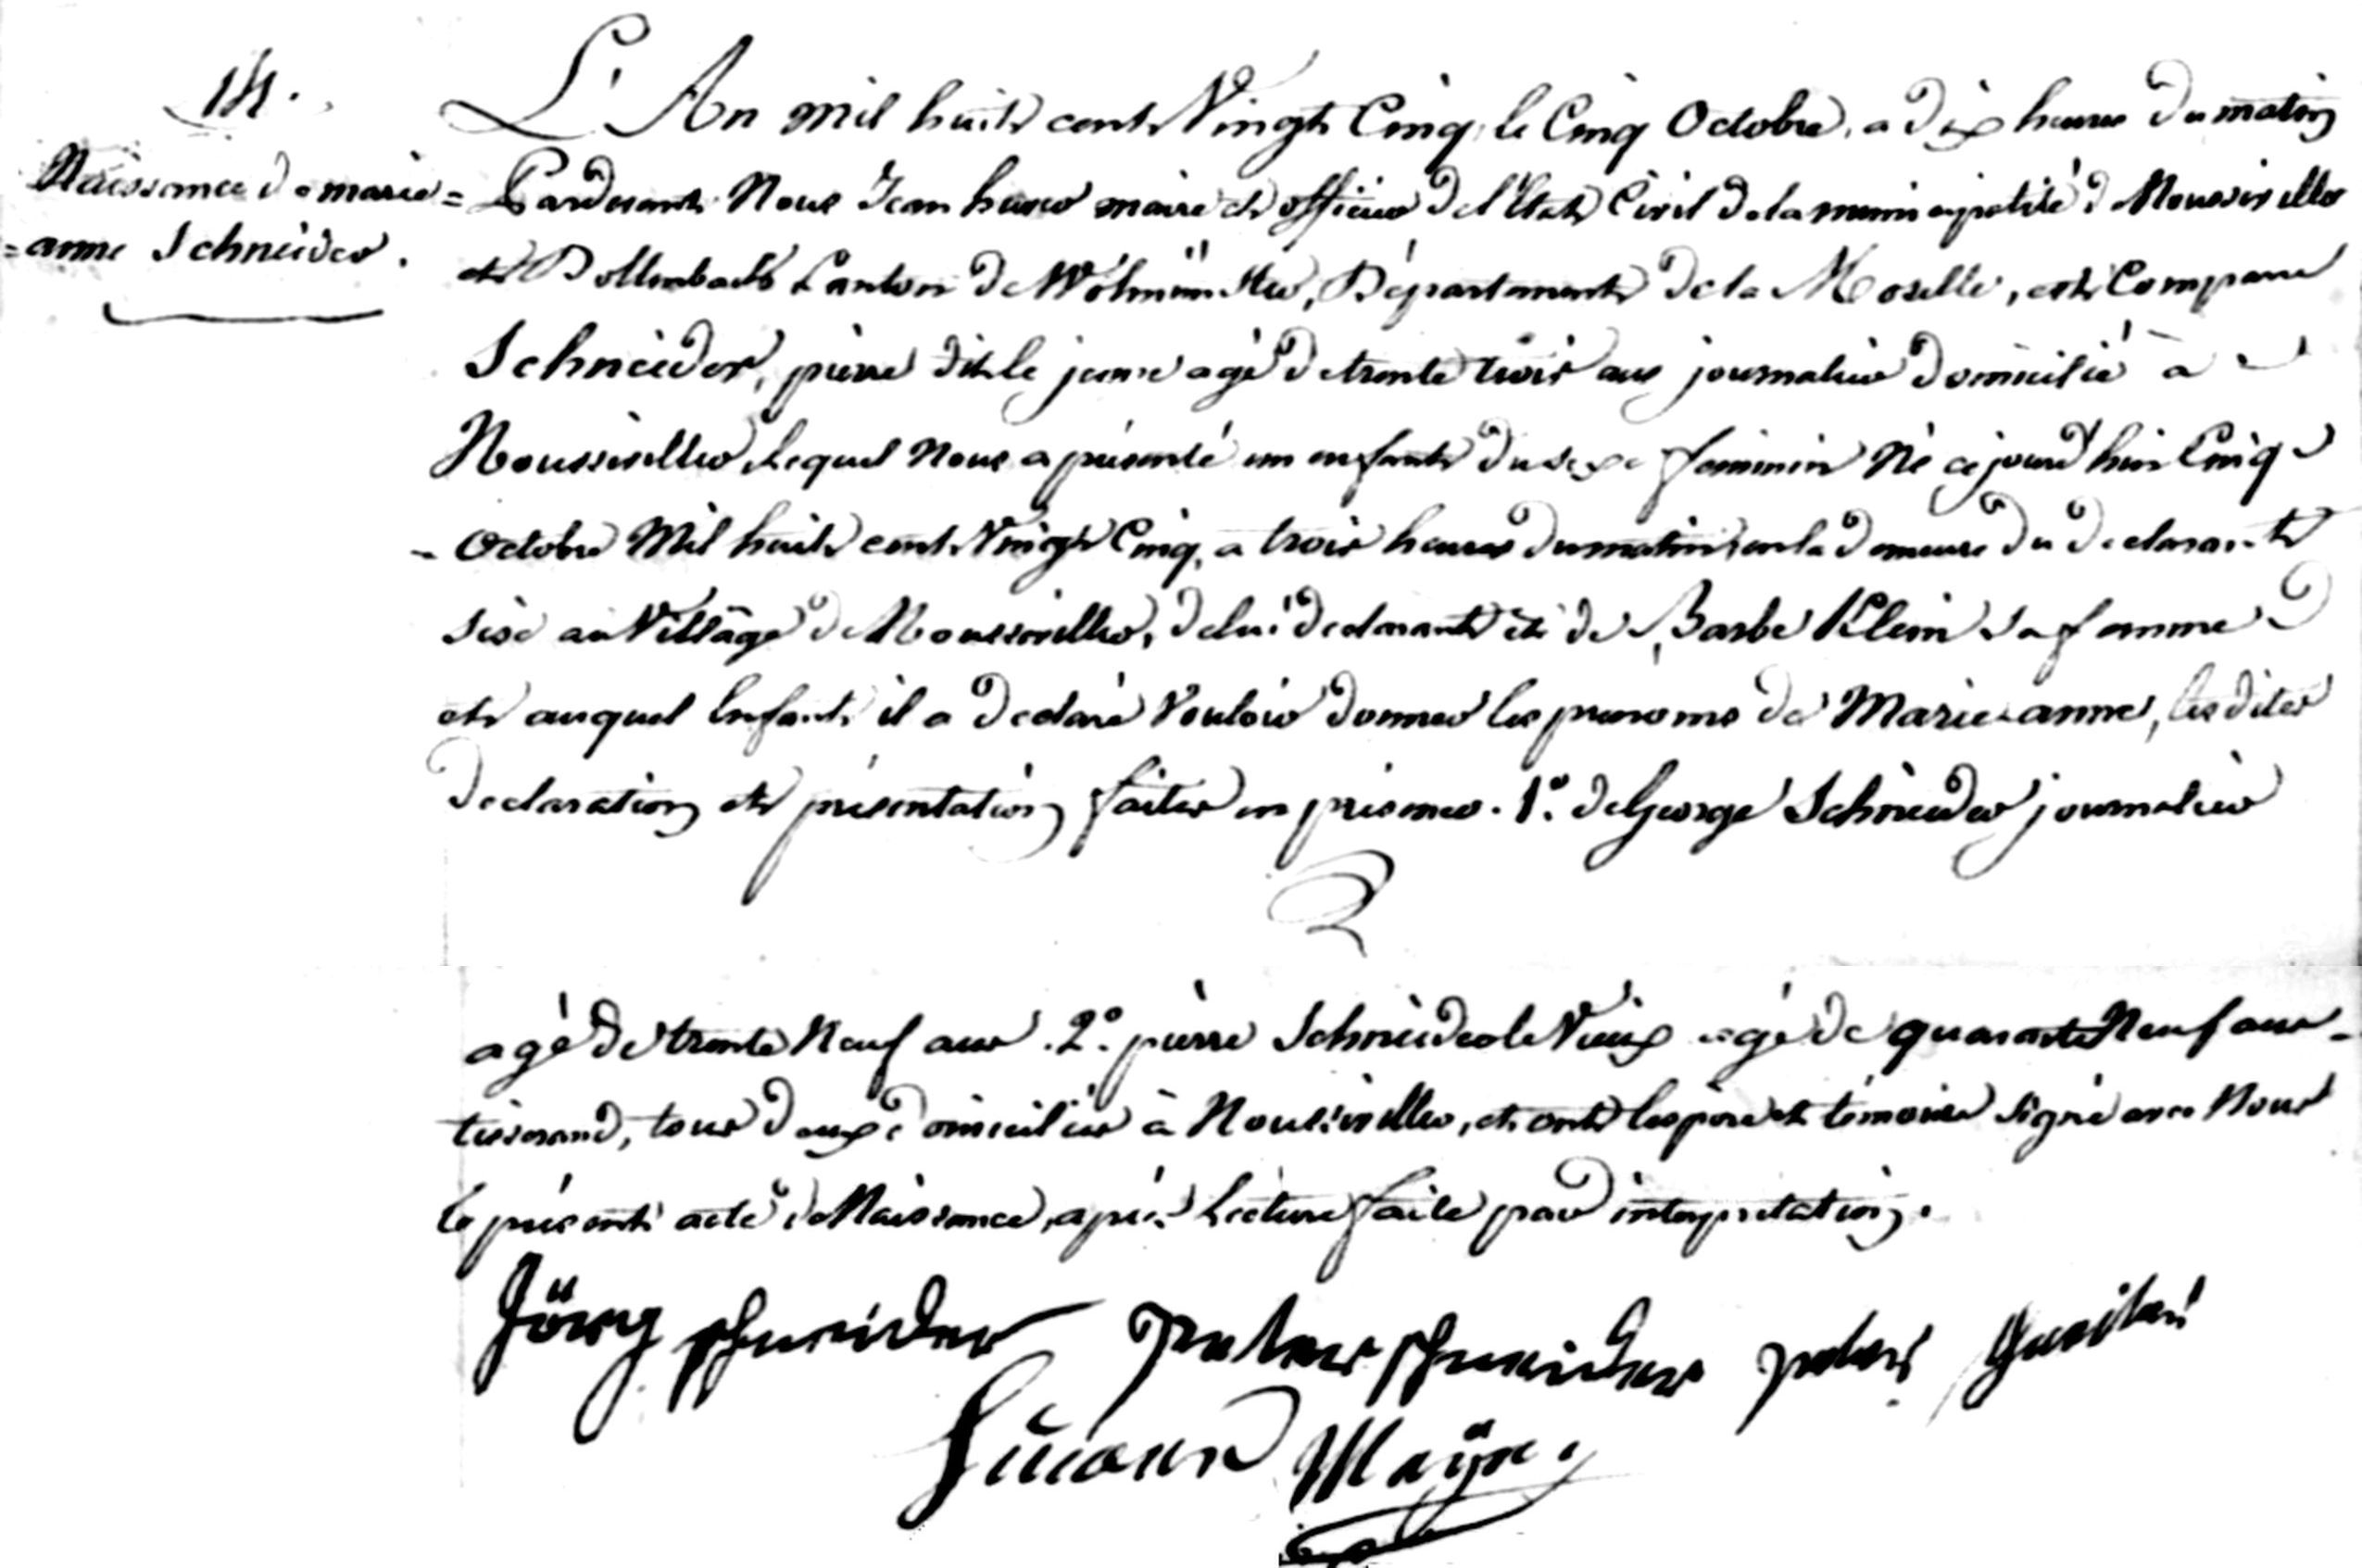 14.
Naissance de marie=
=anne Schneider.
L'An mil huit cent Vingt Cinq, le Cinq Octobre, a dix heures du matin
Pardevant Nous Jean maire et officier de l'Etat Civil de la municipalité de Nousseviller
et Dollenbach Canton de Wolmünster, Département de la Moselle, est Comparu
Schneider, pierre dit le jeune agé de trente trois ans journalier domicilié à
Nousseviller, lequel Nous a présenté un enfant du sexe feminin Né cejourd'hui Cinq
- Octobre Mil huit cent Vingt Cinq, a trois heures du matin, en la demeure du declarant
sise au Village de Nousseviller, de lui declarant et de Barbe Klein sa femme
et auquel Enfant il a declaré Vouloir donner les prenoms de Marie=anne, les dites
declaration et présentation faites en présence. 1.° de George Schneider journalier
agé de trente Neuf ans. 2.° pierre Schneider le Vieux agé de quarante Neuf ans -
tisserand, tous deux domiciliés à Nousseviller, et ont les père et témoins signé avec Nous
le présent acte de Naissance, après Lecture faite par interpretation.
Jörg schneider Peter schneider peter schneider